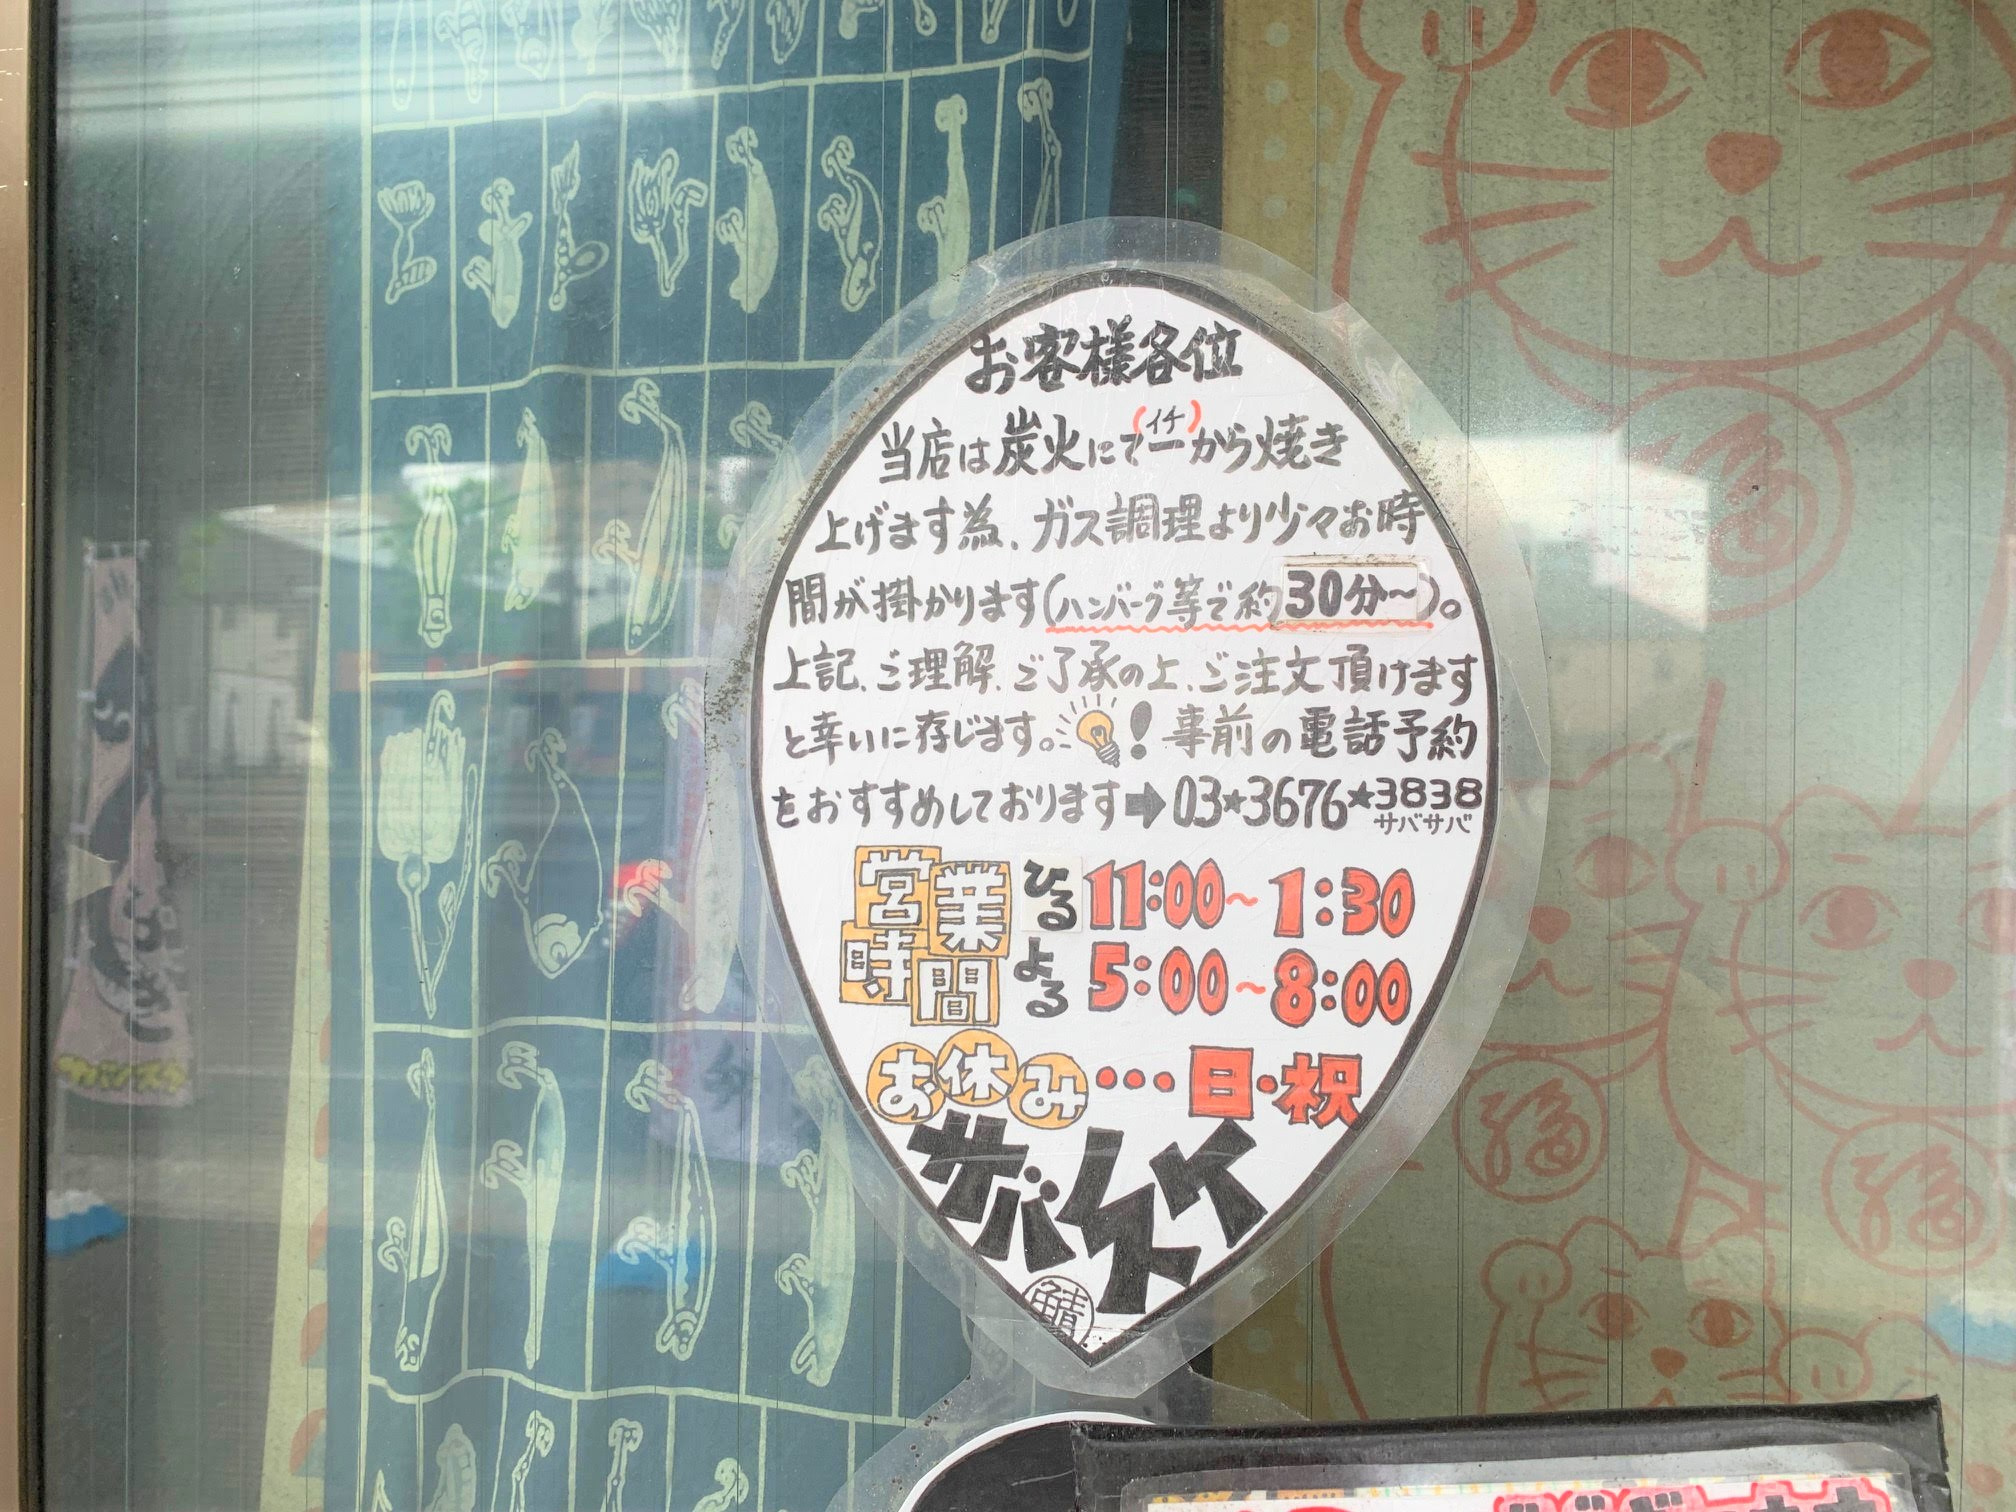 お客様各位
当店は炭火にて一(イチ)から焼き
上げます為、ガス調理より少々お時
間が掛かります(ハンバーグ等で約30分〜)。
上記、ご理解、ご了承の上、ご注文頂けます
と幸いに存じます。! 事前の電話予約
をおすすめしております➡03★3676★3838
サバサバ
営業時間 ひる 11:00〜1:30
よる 5:00〜8:00
お休み…日・祝
サバスケ
鯖
福
福
福